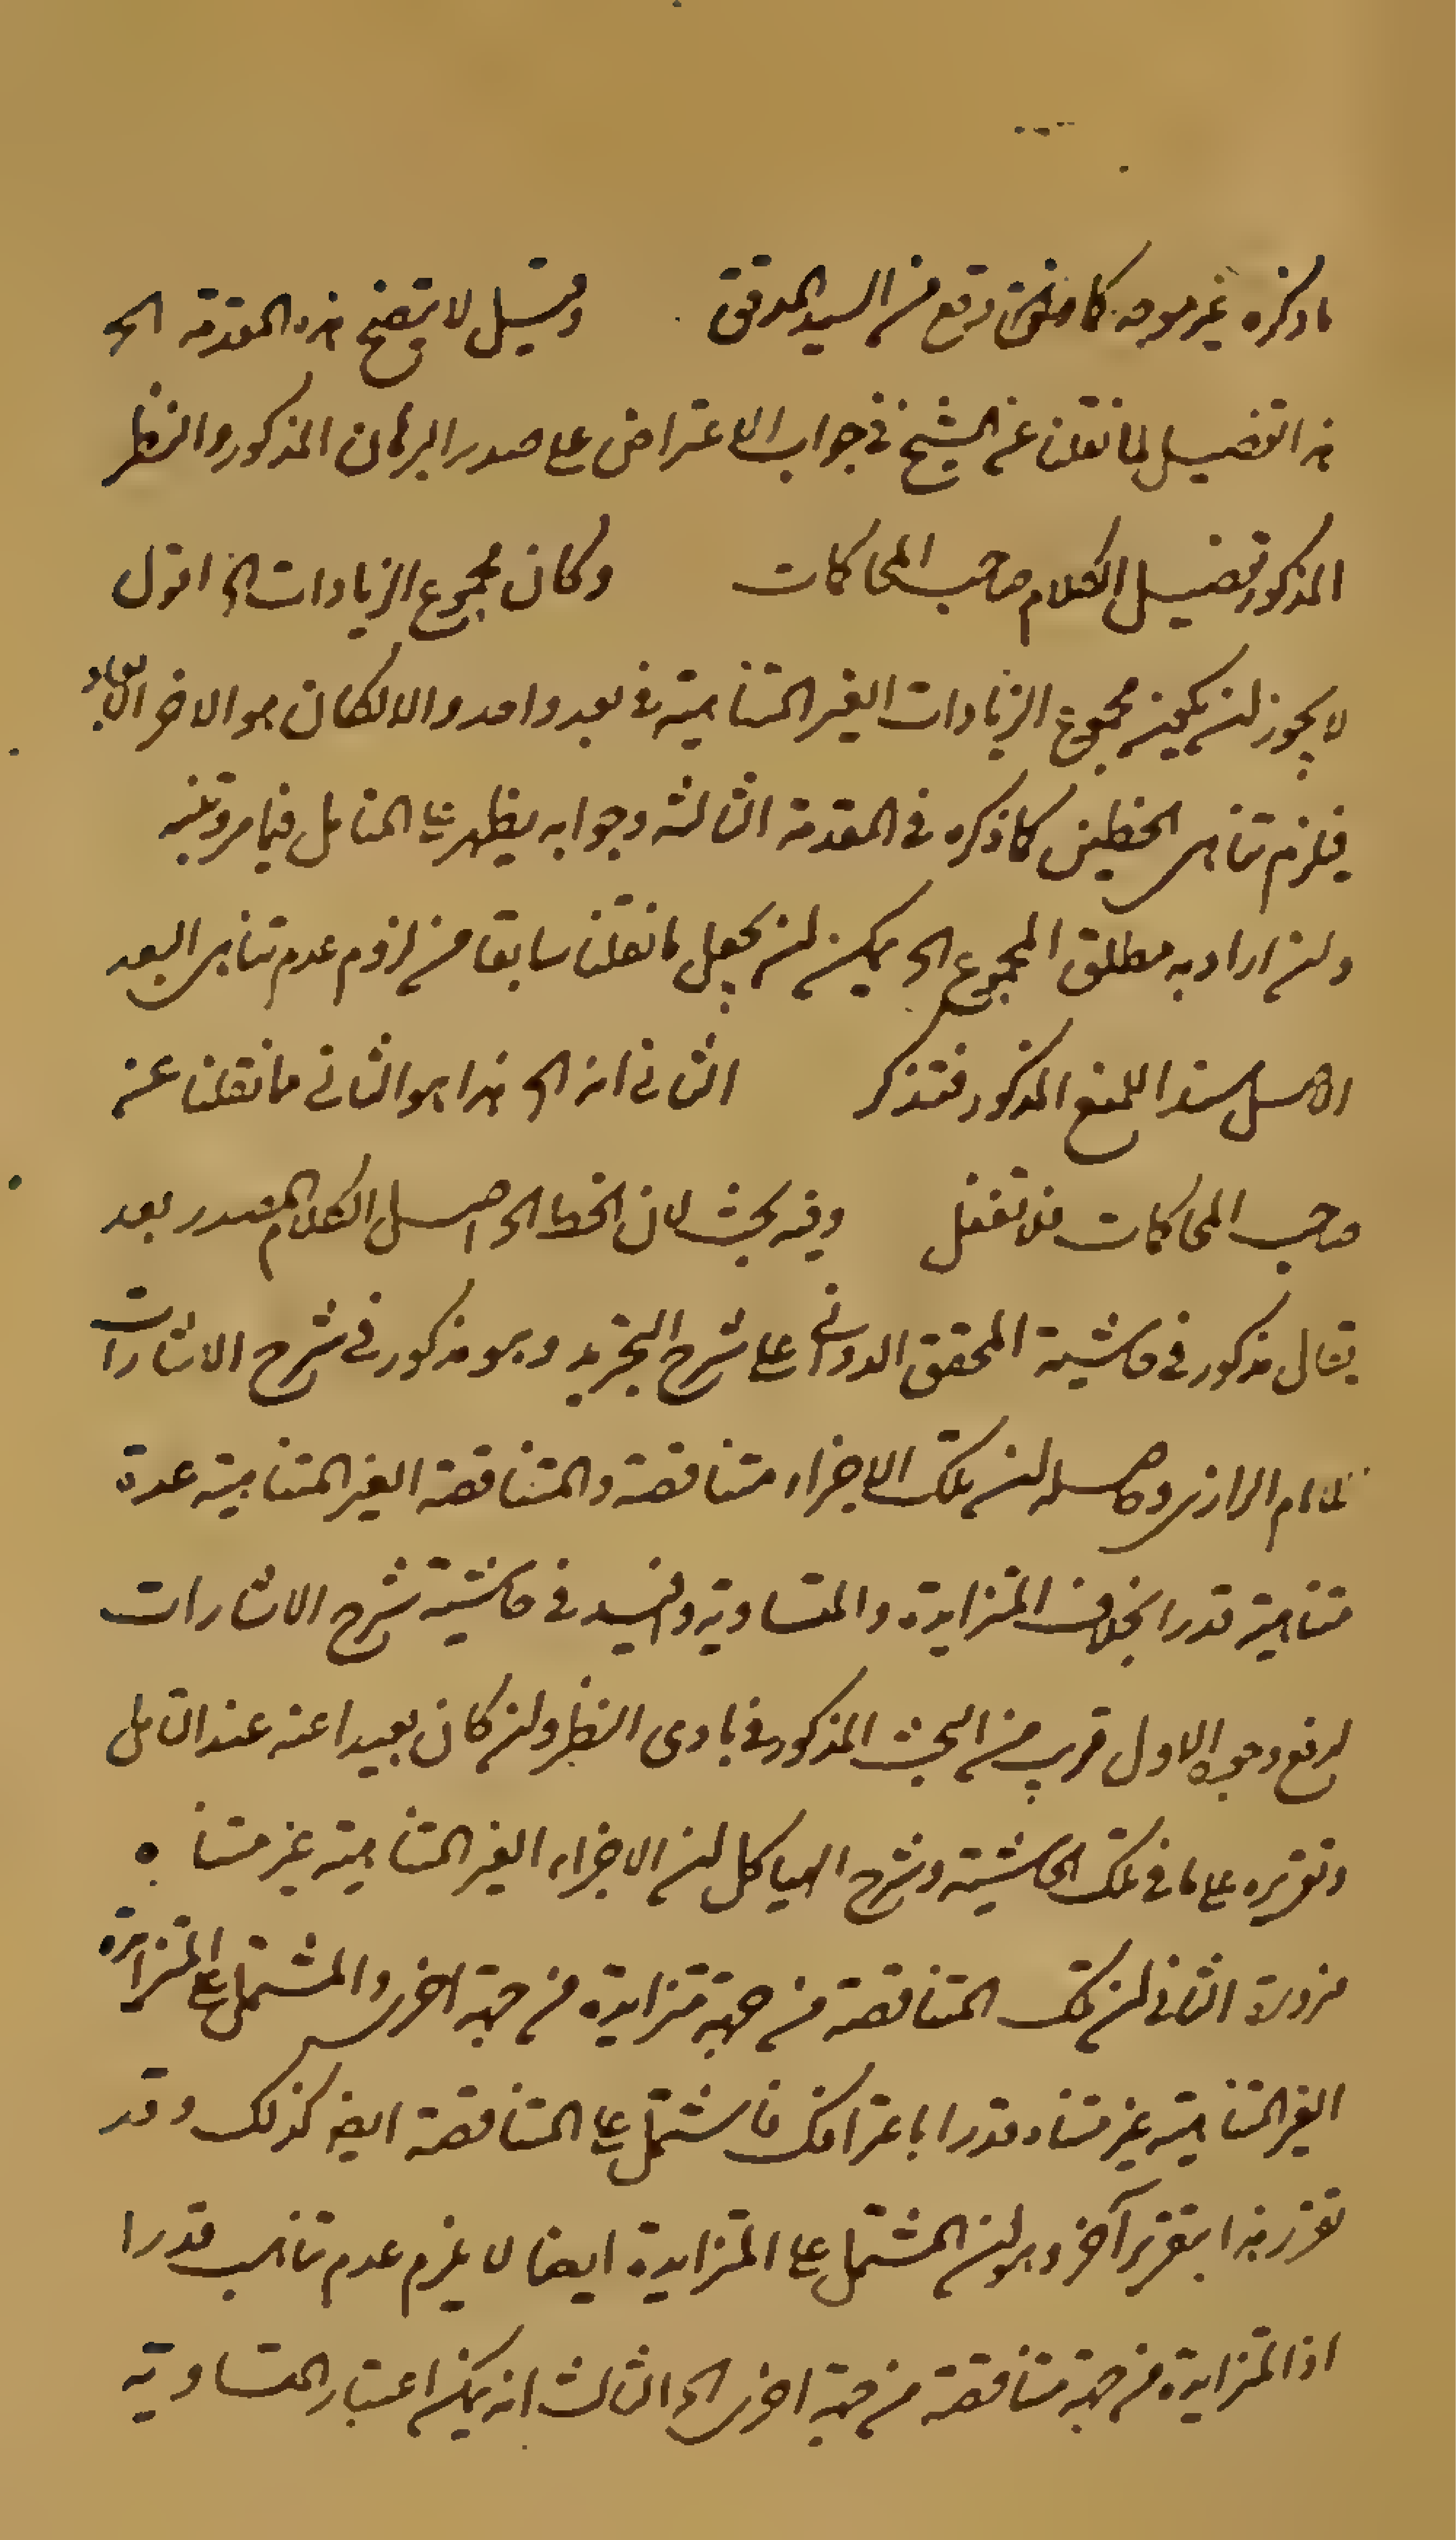 ما ذكره غير موجه كما وقع من السيد المدقق وقيل لا يتضح هذه المقدمة الخ
هذا تفصيل لما نقلنا عن الشيخ في جواب الاعتراض على صدر البرهان المذكور والنظر
المذكور تفصيل لكلام صاحب المحاكمات وكان مجموع الزيادات الخ اقول
لا يجوز ان يكون مجموع الزيادات الغير المتناهية في بعد واحد والا لكان هو الاخر الابعاد
فيلزم تناهى الخطين كما ذكره في المقدمة الثالثة وجوابه يظهر على المتأمل فيما مر وتنبه
وان اراد به مطلق المجموع الخ يمكن ان يجعل ما نقلنا سابقا من لزوم عدم تناهى البعد
الاصل سندا للمنع المذكور فتذكر الثاني انه الخ هذا هو الثاني مما نقلنا عن
صاحب المحاكمات فلا تغفل وفيه بحث لان الخط الخ اصل الكلام المصدر بعد
يقال مذكور في حاشية المحقق الدواني على شرح التجريد وهو مذكور في شرح الاشارات
للامام الرازى وحاصله ان تلك الاجزاء متناقصة والمتناقصة الغير المتناهية عدة
متناهية قدرا بخلاف المتزايدة والمتساوية والسيد في حاشية شرح الاشارات
لدفع وجوه الاول قريب من البحث المذكور في بادى النظر وان كان بعيدا عنه عند التأمل
وتقريره على ما في تلك الحاشية وشرح الهياكل ان الاجزاء الغير المتناهية غير متناه
ضرورة الثاني ان تلك المتناقصة من جهة متزايدة من جهة اخرى والمشتمل على المتزايدة
الغير المتناهية غير متناه قدرا باعترافك فاشتمل على المتناقصة ايضا كذلك وقد
تقرر هذا بتقرير آخر وهو ان المشتمل على المتزايدة ايضا لا يلزم عدم تناهيه قدرا
اذ المتزايدة من جهة متناقصة من جهة اخرى الخ الثالث انه يمكن اعتبار المتساوية